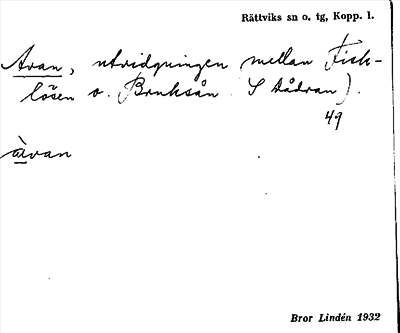 Rättviks sn o. tg, Kopp. l.
Avan, utvidgningen mellan Fisk-
lösen o. (Bruksån S Dådran).
49
àvan
Bror Lindén 1932